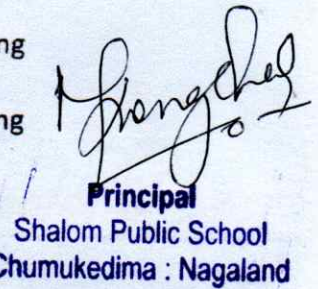 ng
ng
Principal
Shalom Public School
Chumukedima : Nagaland